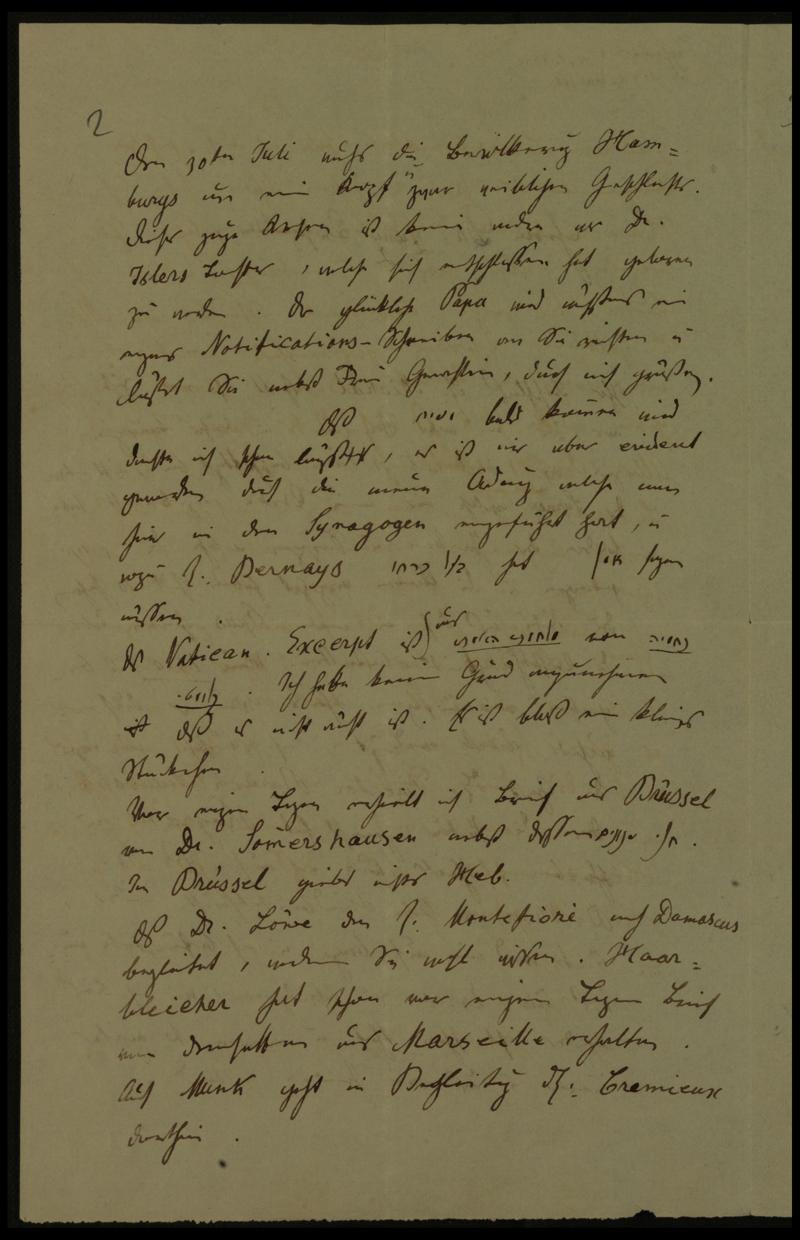 2
Den 30ten Juli wuchs die Bevölkerung Ham=
burgs um ein Kopf zwar weiblichen Geschlechts.
Diese junge Person ist keine andere als Dr.
Islers Tochter, welche sich entschlossen hat geboren
zu werden. Der glückliche Papa wird nächstens ein
eignes Notifications-Schreiben an Sie richten u
läßt Sie nebst Frau Gemahlin, durch mich grüßen.
Daß bald kommen wird
dachte ich schon längst, es ist mir aber evident
geworden durch die neue Ordnung welche man
hier in den Synagogen eingeführt hat, u
wozu H. Bernays hat sagen
müssen.
Das Vatican. Excerpt ist aus von
. Ich habe keinen Grund anzunehmen
daß es nicht ächt ist. Es ist bloß ein kleines
Stückchen.
Vor einigen Tagen erhielt ich Brief aus Brüssel
von Dr. Somershausen nebst dessen
In Brüssel giebt es nichts Heb.
Daß Dr. Löwe den H. Montefiore nach Damascus
begleitet, werden Sie wohl wissen. Haar=
bleicher hat schon vor einigen Tagen Brief
von demselben aus Marseille erhalten.
Auch Munk geht in Begleitung des H. Cremieux
dorthin.